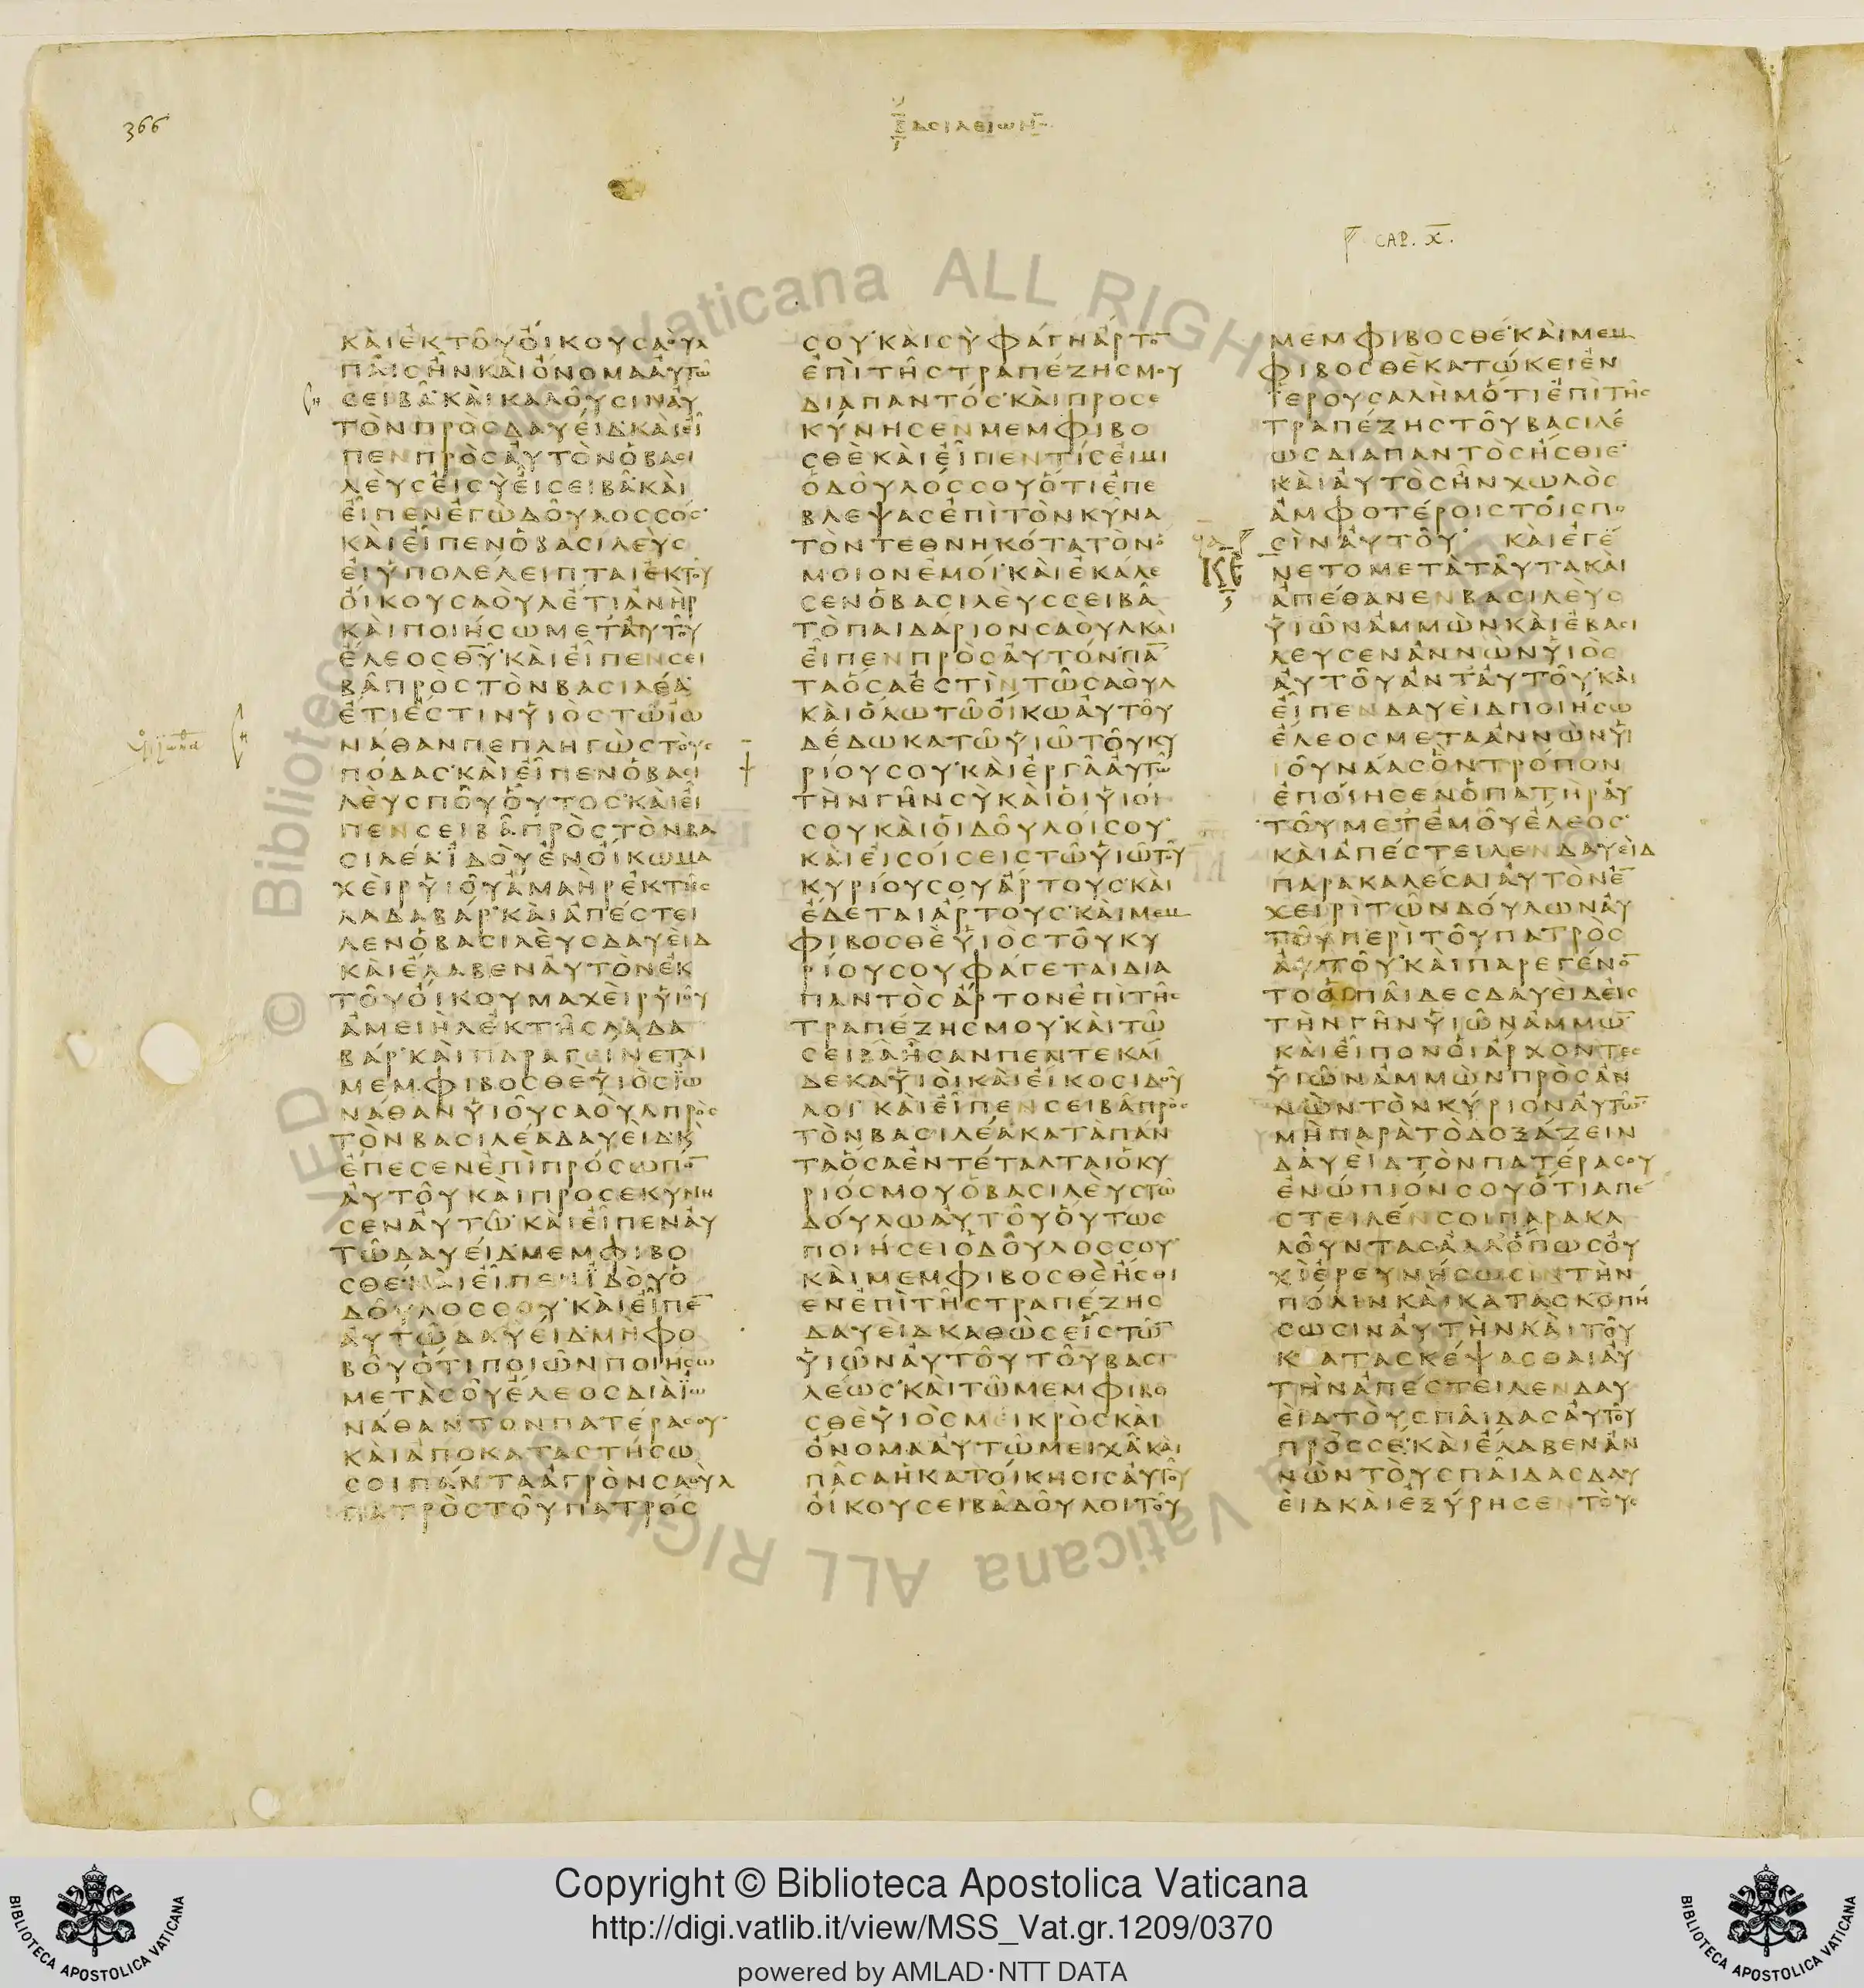 366
ΒΑСΙΛΕΙѠΝ
CAP. X.
ΚΑΙΕΚΤΟΥΟΙΚΟΥСΑΟΥΛ
ΠΑΙСΗΝΚΑΙΟΝΟΜΑΑΥΤѠ
СΕΙΒΑ·ΚΑΙΚΑΛΟΥСΙΝΑΥ
ΤΟΝΠΡΟСΔΑΥΕΙΔ·ΚΑΙΕΙ
ΠΕΝΠΡΟСΑΥΤΟΝΟΒΑСΙ
ΛΕΥСΕΙСΥΕΙСΕΙΒΑ·ΚΑΙ
ΕΙΠΕΝΕΓѠΔΟΥΛΟССΟС·
ΚΑΙΕΙΠΕΝΟΒΑСΙΛΕΥС
ΕΙΥΠΟΛΕΛΕΙΠΤΑΙΕΚΤΟΥ
ΟΙΚΟΥСΑΟΥΛΕΤΙΑΝΗΡ
ΚΑΙΠΟΙΗСѠΜΕΤΑΥΤΟΥ
ΕΛΕΟСΘΥ·ΚΑΙΕΙΠΕΝСΕΙ
ΒΑΠΡΟСΤΟΝΒΑСΙΛΕΑ·
ΕΤΙΕСΤΙΝΥΙΟСΤѠΙѠ
ΝΑΘΑΝΠΕΠΛΗΓѠСΤΟΥС
ΠΟΔΑС·ΚΑΙΕΙΠΕΝΟΒΑСΙ
ΛΕΥСΠΟΥΟΥΤΟС·ΚΑΙΕΙ
ΠΕΝСΕΙΒΑΠΡΟСΤΟΝΒΑ
СΙΛΕΑ·ΙΔΟΥΕΝΟΙΚѠΜΑ
ΧΕΙΡΥΙΟΥΑΜΑΗΡΕΚΤΗС
ΛΑΔΑΒΑΡ·ΚΑΙΑΠΕСΤΕΙ
ΛΕΝΟΒΑСΙΛΕΥСΔΑΥΕΙΔ
ΚΑΙΕΛΑΒΕΝΑΥΤΟΝΕΚ
ΤΟΥΟΙΚΟΥΜΑΧΕΙΡΥΙΟΥ
ΑΜΕΙΗΛΕΚΤΗСΛΑΔΑ
ΒΑΡ·ΚΑΙΠΑΡΑΓΕΙΝΕΤΑΙ
ΜΕΜΦΙΒΟСΘΕΥΙΟСΪѠ
ΝΑΘΑΝΥΙΟΥСΑΟΥΛΠΡΟС
ΤΟΝΒΑСΙΛΕΑΔΑΥΕΙΔ·Κ
ΕΠΕСΕΝΕΠΙΠΡΟСѠΠΟ̅
ΑΥΤΟΥΚΑΙΠΡΟСΕΚΥΝΗ
СΕΝΑΥΤѠ·ΚΑΙΕΙΠΕΝΑΥ
ΤѠΔΑΥΕΙΔ·ΜΕΜΦΙΒΟ
СΘΕ·ΚΑΙΕΙΠΕΝΪΔΟΥΟ
ΔΟΥΛΟССΟΥ·ΚΑΙΕΙΠΕ̅
ΑΥΤѠΔΑΥΕΙΔ·ΜΗΦΟ
ΒΟΥΟΤΙΠΟΙѠΝΠΟΙΗСѠ
ΜΕΤΑСΟΥΕΛΕΟСΔΙΑΪѠ
ΝΑΘΑΝΤΟΝΠΑΤΕΡΑСΟΥ·
ΚΑΙΑΠΟΚΑΤΑСΤΗСѠ
СΟΙΠΑΝΤΑΑΓΡΟΝСΑΟΥΛ
ΠΑΤΡΟСΤΟΥΠΑΤΡΟС
СΟΥ·ΚΑΙСΥΦΑΓΗΑΡΤΟ̅
ΕΠΙΤΗСΤΡΑΠΕΖΗСΜΟΥ
ΔΙΑΠΑΝΤΟС·ΚΑΙΠΡΟСΕ
ΚΥΝΗСΕΝΜΕΜΦΙΒΟ
СΘΕΚΑΙΕΙΠΕΝΤΙСΕΙΜΙ
ΟΔΟΥΛΟССΟΥΟΤΙΕΠΕ
ΒΛΕΨΑСΕΠΙΤΟΝΚΥΝΑ
ΤΟΝΤΕΘΝΗΚΟΤΑΤΟΝΟ
ΜΟΙΟΝΕΜΟΙ·ΚΑΙΕΚΑΛΕ
СΕΝΟΒΑСΙΛΕΥССΕΙΒΑ
ΤΟΠΑΙΔΑΡΙΟΝСΑΟΥΛΚΑΙ
ΕΙΠΕΝΠΡΟСΑΥΤΟΝ·ΠΑ̅
ΤΑΟСΑΕСΤΙΝΤѠСΑΟΥΛ
ΚΑΙΟΛѠΤѠΟΙΚѠΑΥΤΟΥ
ΔΕΔѠΚΑΤѠΥΙѠΤΟΥΚΥ
ΡΙΟΥСΟΥ·ΚΑΙΕΡΓΑΑΥΤѠ
ΤΗΝΓΗΝСΥΚΑΙΟΙΥΙΟΙ
СΟΥΚΑΙΟΙΔΟΥΛΟΙСΟΥ·
ΚΑΙΕΙСΟΙСΕΙСΤѠΥΙѠΤΟΥ
ΚΥΡΙΟΥСΟΥΑΡΤΟΥС·ΚΑΙ
ΕΔΕΤΑΙΑΡΤΟΥС·ΚΑΙΜΕΜ
ΦΙΒΟСΘΕΥΙΟСΤΟΥΚΥ
ΡΙΟΥСΟΥΦΑΓΕΤΑΙΔΙΑ
ΠΑΝΤΟСΑΡΤΟΝΕΠΙΤΗС
ΤΡΑΠΕΖΗСΜΟΥ·ΚΑΙΤѠ
СΕΙΒΑΗСΑΝΠΕΝΤΕΚΑΙ
ΔΕΚΑΥΙΟΙΚΑΙΕΙΚΟСΙΔΟΥ
ΛΟΙ·ΚΑΙΕΙΠΕΝСΕΙΒΑΠΡΟС
ΤΟΝΒΑСΙΛΕΑΚΑΤΑΠΑΝ
ΤΑΟСΑΕΝΤΕΤΑΛΤΑΙΟΚΥ
ΡΙΟСΜΟΥΟΒΑСΙΛΕΥСΤѠ
ΔΟΥΛѠΑΥΤΟΥΟΥΤѠС
ΠΟΙΗСΕΙΟΔΟΥΛΟССΟΥ·
ΚΑΙΜΕΜΦΙΒΟСΘΕΗСΘΙ
ΕΝΕΠΙΤΗСΤΡΑΠΕΖΗС
ΔΑΥΕΙΔΚΑΘѠСΕΙСΤѠ̅
ΥΙѠΝΑΥΤΟΥΤΟΥΒΑСΙ
ΛΕѠС·ΚΑΙΤѠΜΕΜΦΙΒΟ
СΘΕΥΙΟСΜΕΙΚΡΟСΚΑΙ
ΟΝΟΜΑΑΥΤѠΜΕΙΧΑ·ΚΑΙ
ΠΑСΑΗΚΑΤΟΙΚΗСΙСΑΥΤΟΥ
ΟΙΚΟΥСΕΙΒΑΔΟΥΛΟΙΤΟΥ
ΜΕΜΦΙΒΟСΘΕ·ΚΑΙΜΕΜ
ΦΙΒΟСΘΕΚΑΤѠΚΕΙΕΝ
ΪΕΡΟΥСΑΛΗΜΟΤΙΕΠΙΤΗС
ΤΡΑΠΕΖΗСΤΟΥΒΑСΙΛΕ
ѠСΔΙΑΠΑΝΤΟСΗСΘΙΕ·
ΚΑΙΑΥΤΟСΗΝΧѠΛΟС
ΑΜΦΟΤΕΡΟΙСΤΟΙСΠΟ
СΙΝΑΥΤΟΥ· ΚΑΙΕΓΕ
ΚΕ ΝΕΤΟΜΕΤΑΤΑΥΤΑΚΑΙ
ΑΠΕΘΑΝΕΝΒΑСΙΛΕΥС
ΥΙѠΝΑΜΜѠΝΚΑΙΕΒΑСΙ
ΛΕΥСΕΝΑΝΝѠΝΥΙΟС
ΑΥΤΟΥΑΝΤΑΥΤΟΥ·ΚΑΙ
ΕΙΠΕΝΔΑΥΕΙΔΠΟΙΗСѠ
ΕΛΕΟСΜΕΤΑΑΝΝѠΝΥΙ
ΟΥΝΑΑСΟΝΤΡΟΠΟΝ
ΕΠΟΙΗСΕΝΟΠΑΤΗΡΑΥ
ΤΟΥΜΕΤΕΜΟΥΕΛΕΟС·
ΚΑΙΑΠΕСΤΕΙΛΕΝΔΑΥΕΙΔ
ΠΑΡΑΚΑΛΕСΑΙΑΥΤΟΝΕ̅
ΧΕΙΡΙΤѠΝΔΟΥΛѠΝΑΥ
ΤΟΥΠΕΡΙΤΟΥΠΑΤΡΟС
ΑΥΤΟΥ·ΚΑΙΠΑΡΕΓΕΝΟ̅
ΤΟΟΙΠΑΙΔΕСΔΑΥΕΙΔΕΙС
ΤΗΝΓΗΝΥΙѠΝΑΜΜѠ̅
ΚΑΙΕΙΠΟΝΟΙΑΡΧΟΝΤΕС
ΥΙѠΝΑΜΜѠΝΠΡΟСΑΝ
ΝѠΝΤΟΝΚΥΡΙΟΝΑΥΤѠ̅
ΜΗΠΑΡΑΤΟΔΟΞΑΖΕΙΝ
ΔΑΥΕΙΔΤΟΝΠΑΤΕΡΑСΟΥ
ΕΝѠΠΙΟΝСΟΥΟΤΙΑΠΕ
СΤΕΙΛΕΝСΟΙΠΑΡΑΚΑ
ΛΟΥΝΤΑС·ΑΛΛΑΟΠѠСΟΥ
ΧΙΕΡΕΥΝΗСѠСΙΝΤΗΝ
ΠΟΛΙΝΚΑΙΚΑΤΑСΚΟΠΗ
СѠСΙΝΑΥΤΗΝΚΑΙΤΟΥ
ΚΑΤΑСΚΕΨΑСΘΑΙΑΥ
ΤΗΝΑΠΕСΤΕΙΛΕΝΔΑΥ
ΕΙΔΤΟΥСΠΑΙΔΑСΑΥΤΟΥ
ΠΡΟССΕ·ΚΑΙΕΛΑΒΕΝΑΝ
ΝѠΝΤΟΥСΠΑΙΔΑСΔΑΥ
ΕΙΔΚΑΙΕΞΥΡΗСΕΝΤΟΥС
Copyright © Biblioteca Apostolica Vaticana
http://digi.vatlib.it/view/MSS_Vat.gr.1209/0370
powered by AMLAD·NTT DATA
BIBLIOTECA APOSTOLICA VATICANA
BIBLIOTECA APOSTOLICA VATICANA